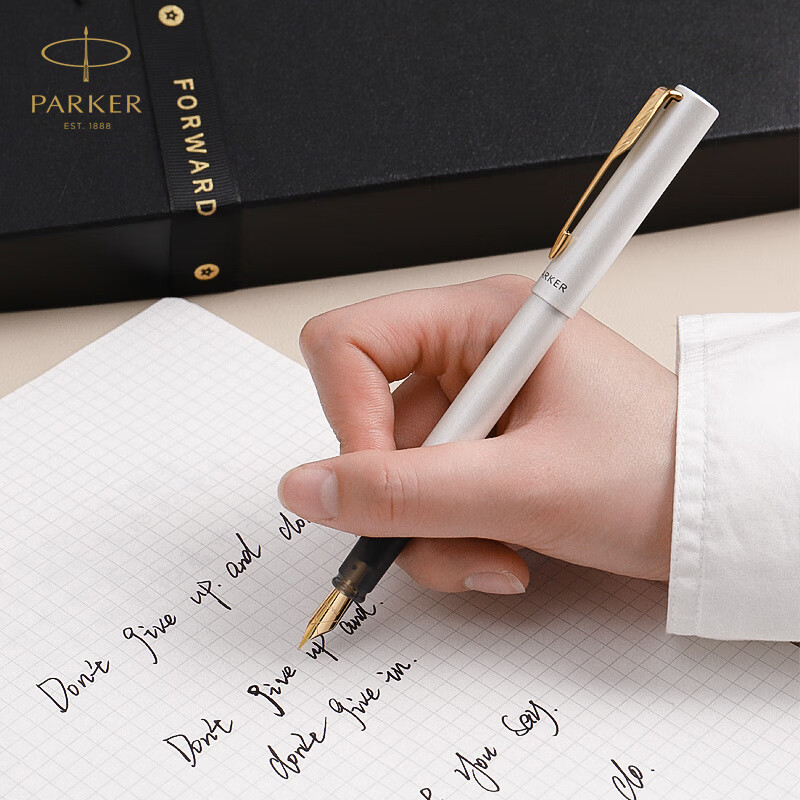 PARKER
EST. 1888
FORWARD
ARKER
Don't give up. and do
Don't give up and.
don't give in.
you say.
do.